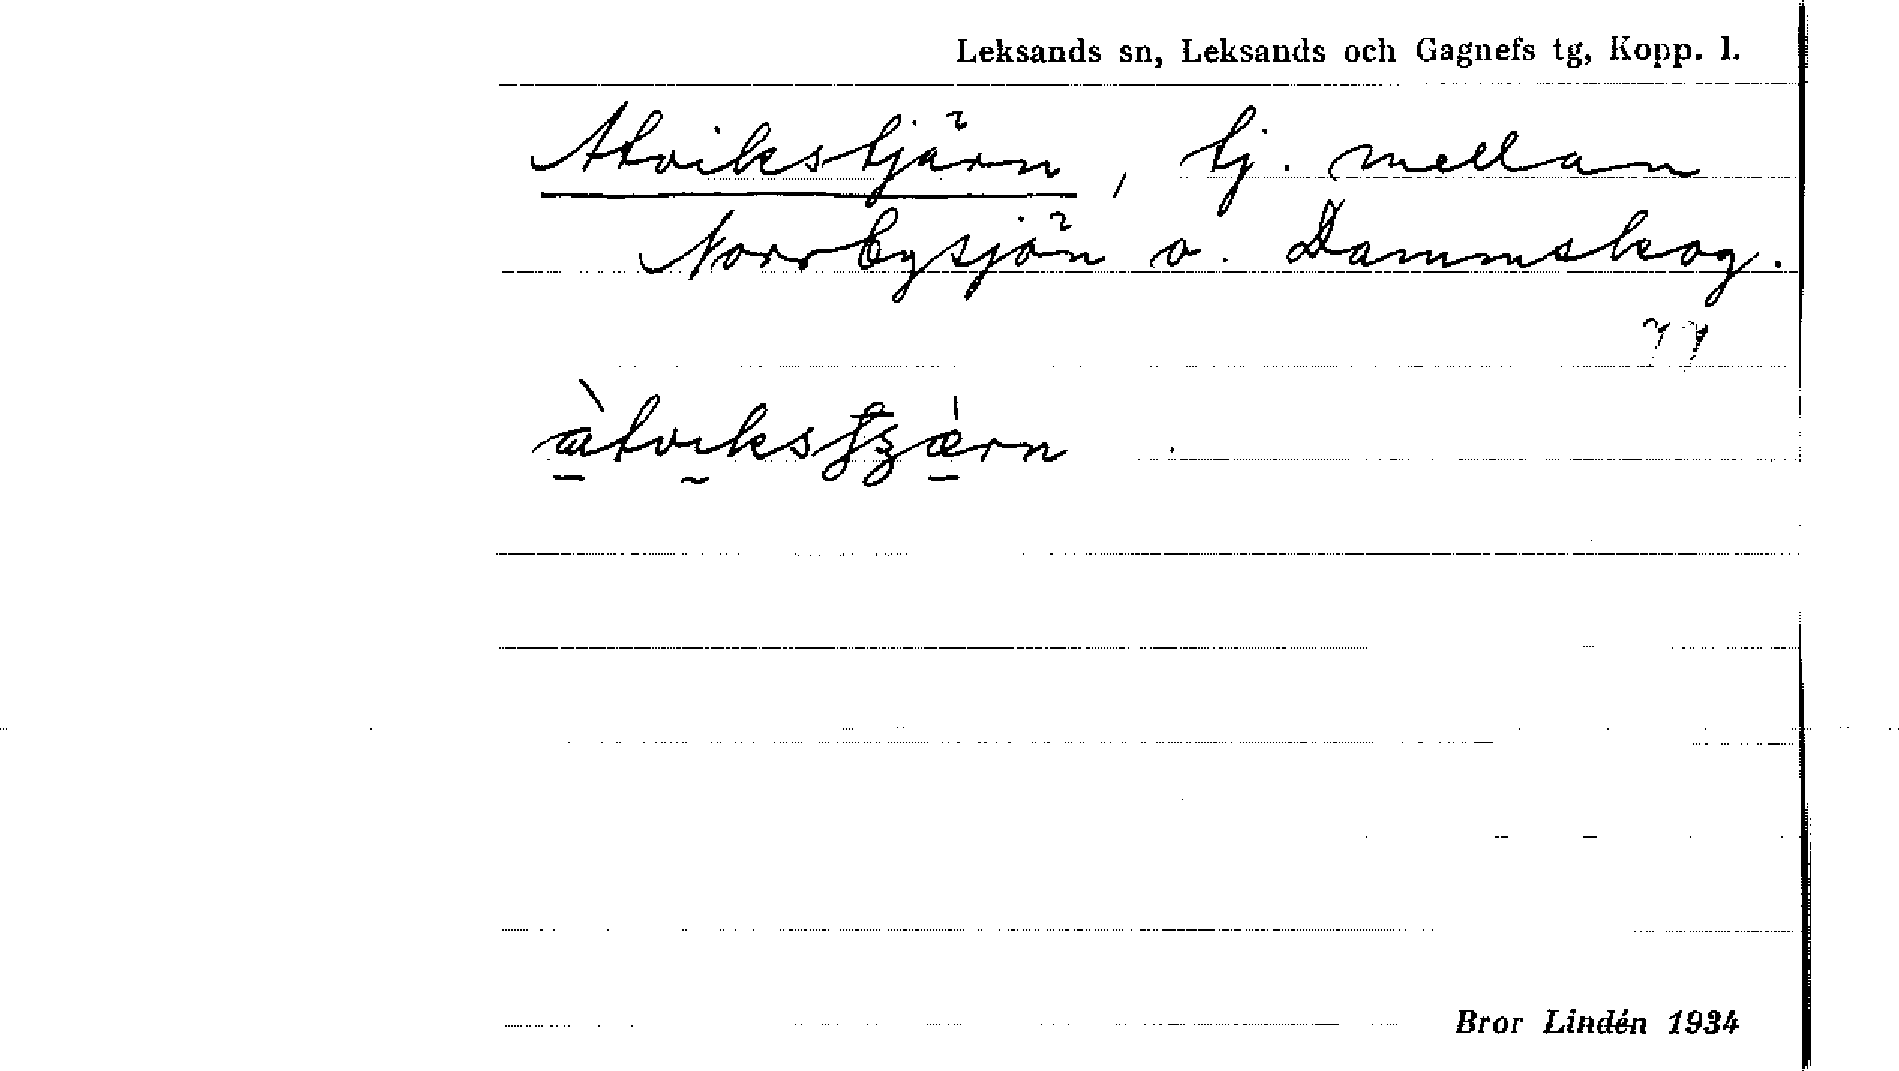 Leksands sn, Leksands och Gagnefs tg, Kopp. l.
Atvikstjärn, tj. mellan
Norrbysjön o. Dammskog.
77
Bror Lindén 1934